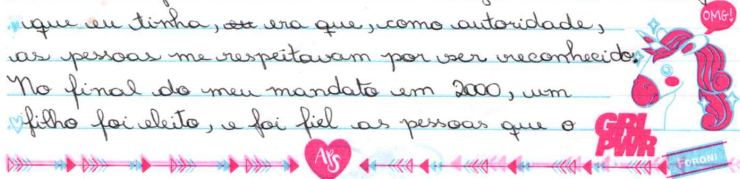 que eu tinha, era que, como autoridade,
OMG!
as pessoas me respeitavam por ser reconhecido.
No final do meu mandato em 2000, um
filho foi eleito, e foi fiel as pessoas que o
GRL
PWR
FORONI